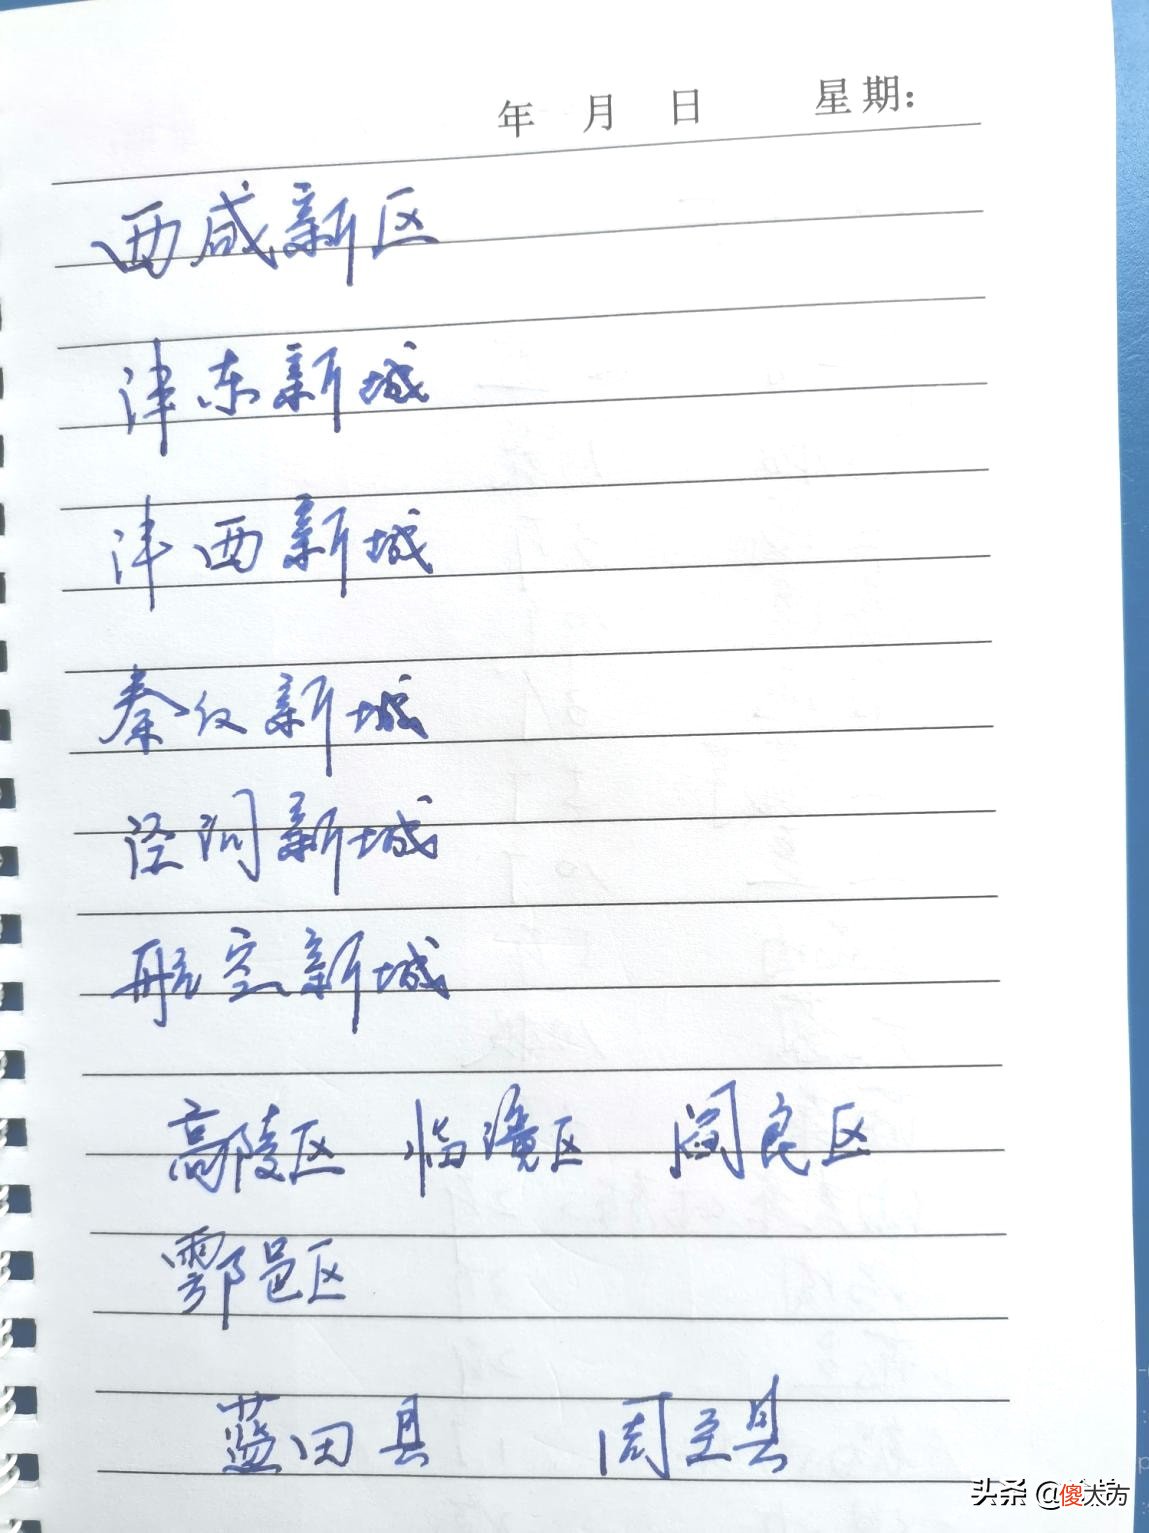 年 月 日 星期:
西咸新区
津东新城
沣西新城
秦汉新城
泾河新城
航空新城
高陵区 临潼区 阎良区
鄠邑区
蓝田县 周至县
头条 @傻大方